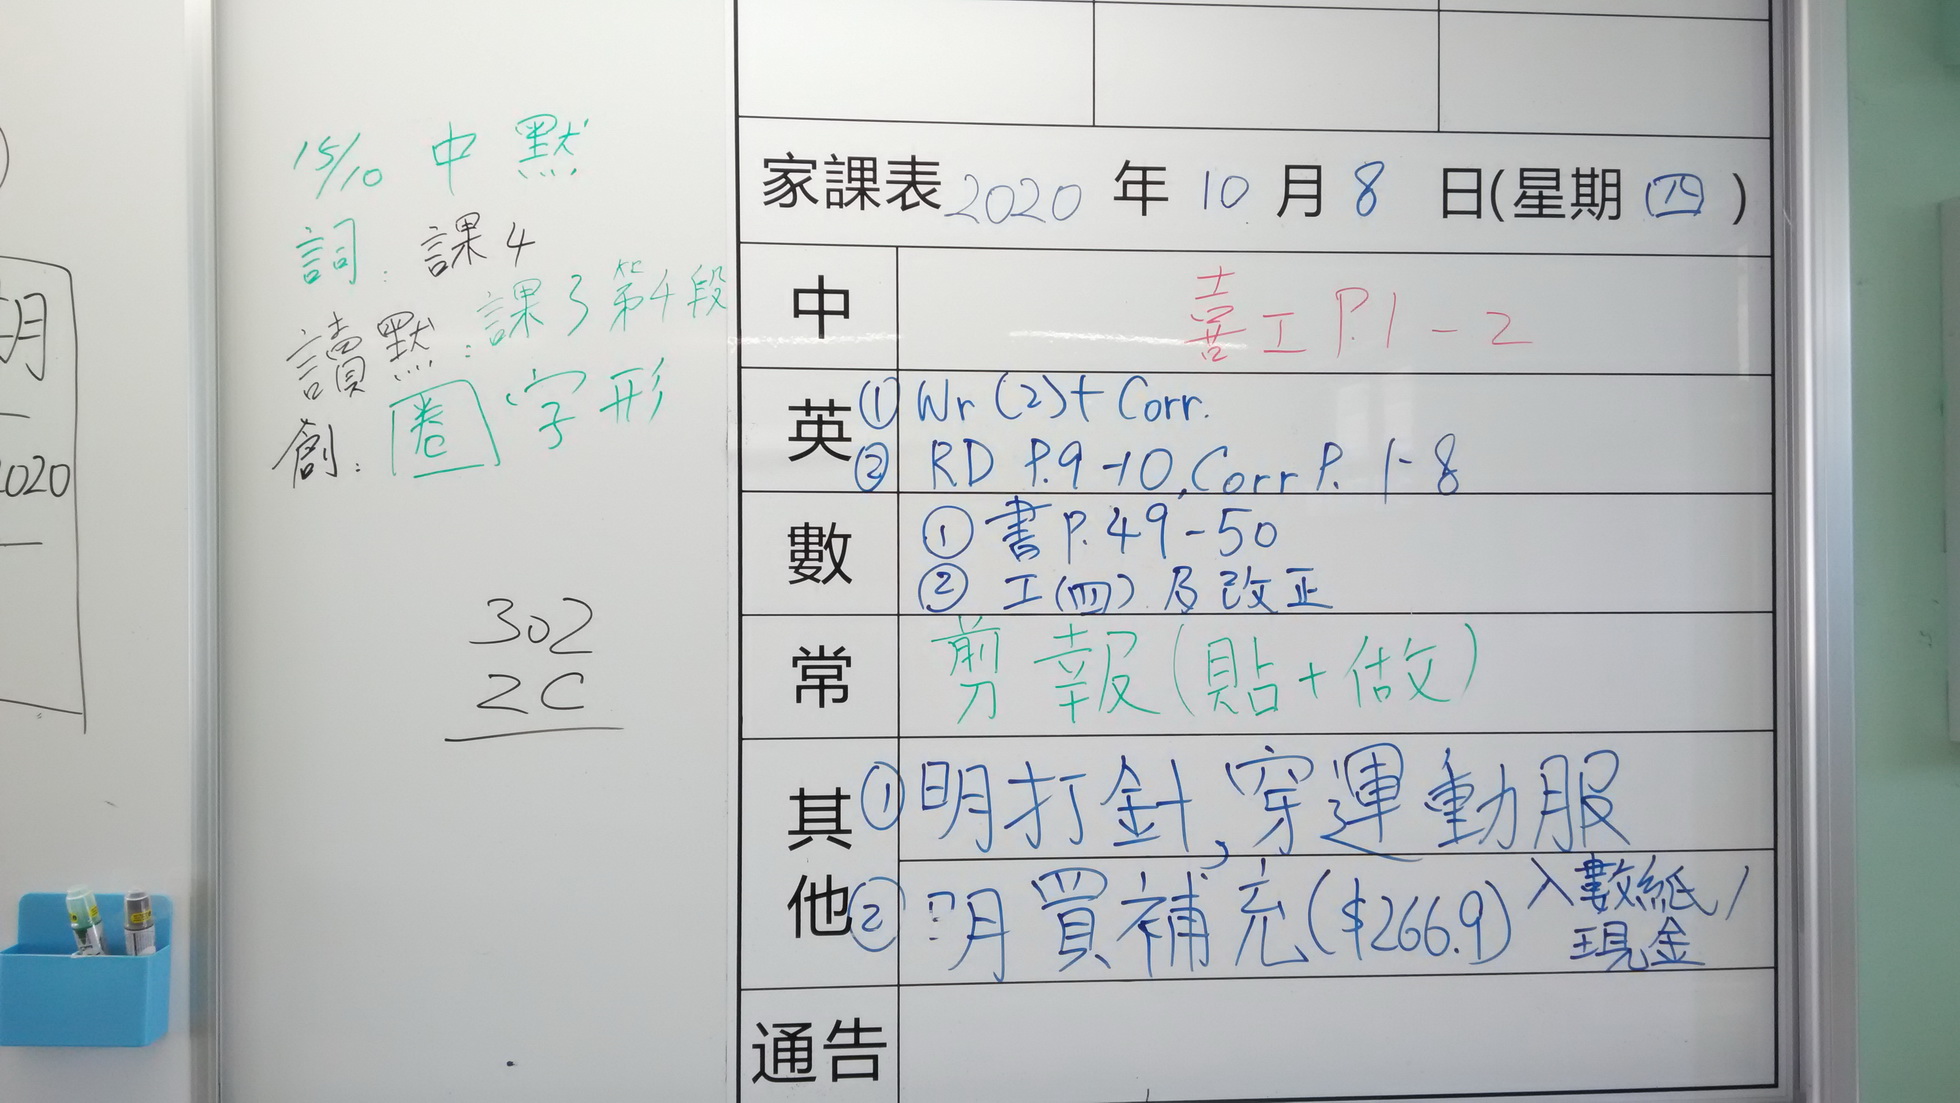 15/10 中默
詞：課4
讀默：課3第4段
創：圈字形
302
2C
月
2020
家課表 2020 年 10 月 8 日(星期 四 )
中 喜工 P.1-2
英 ① Wr (2)+ Corr.
② RD P.9-10, Corr P. 1-8
數 ① 書 P.49-50
② 工(四) 及改正
常 剪報(貼+做)
其他 ① 明打針, 穿運動服
② 明買補充($266.9) 入數紙/
現金
通告